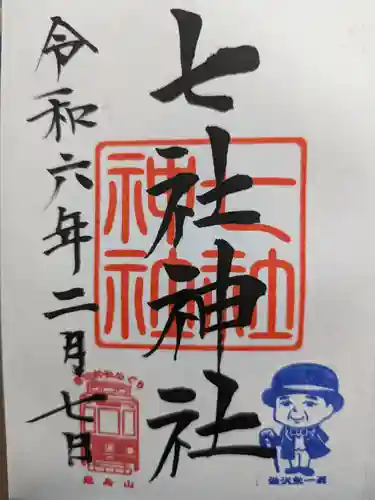 七社神社
令和六年二月七日
七社神社
飛鳥山
渋沢栄一翁